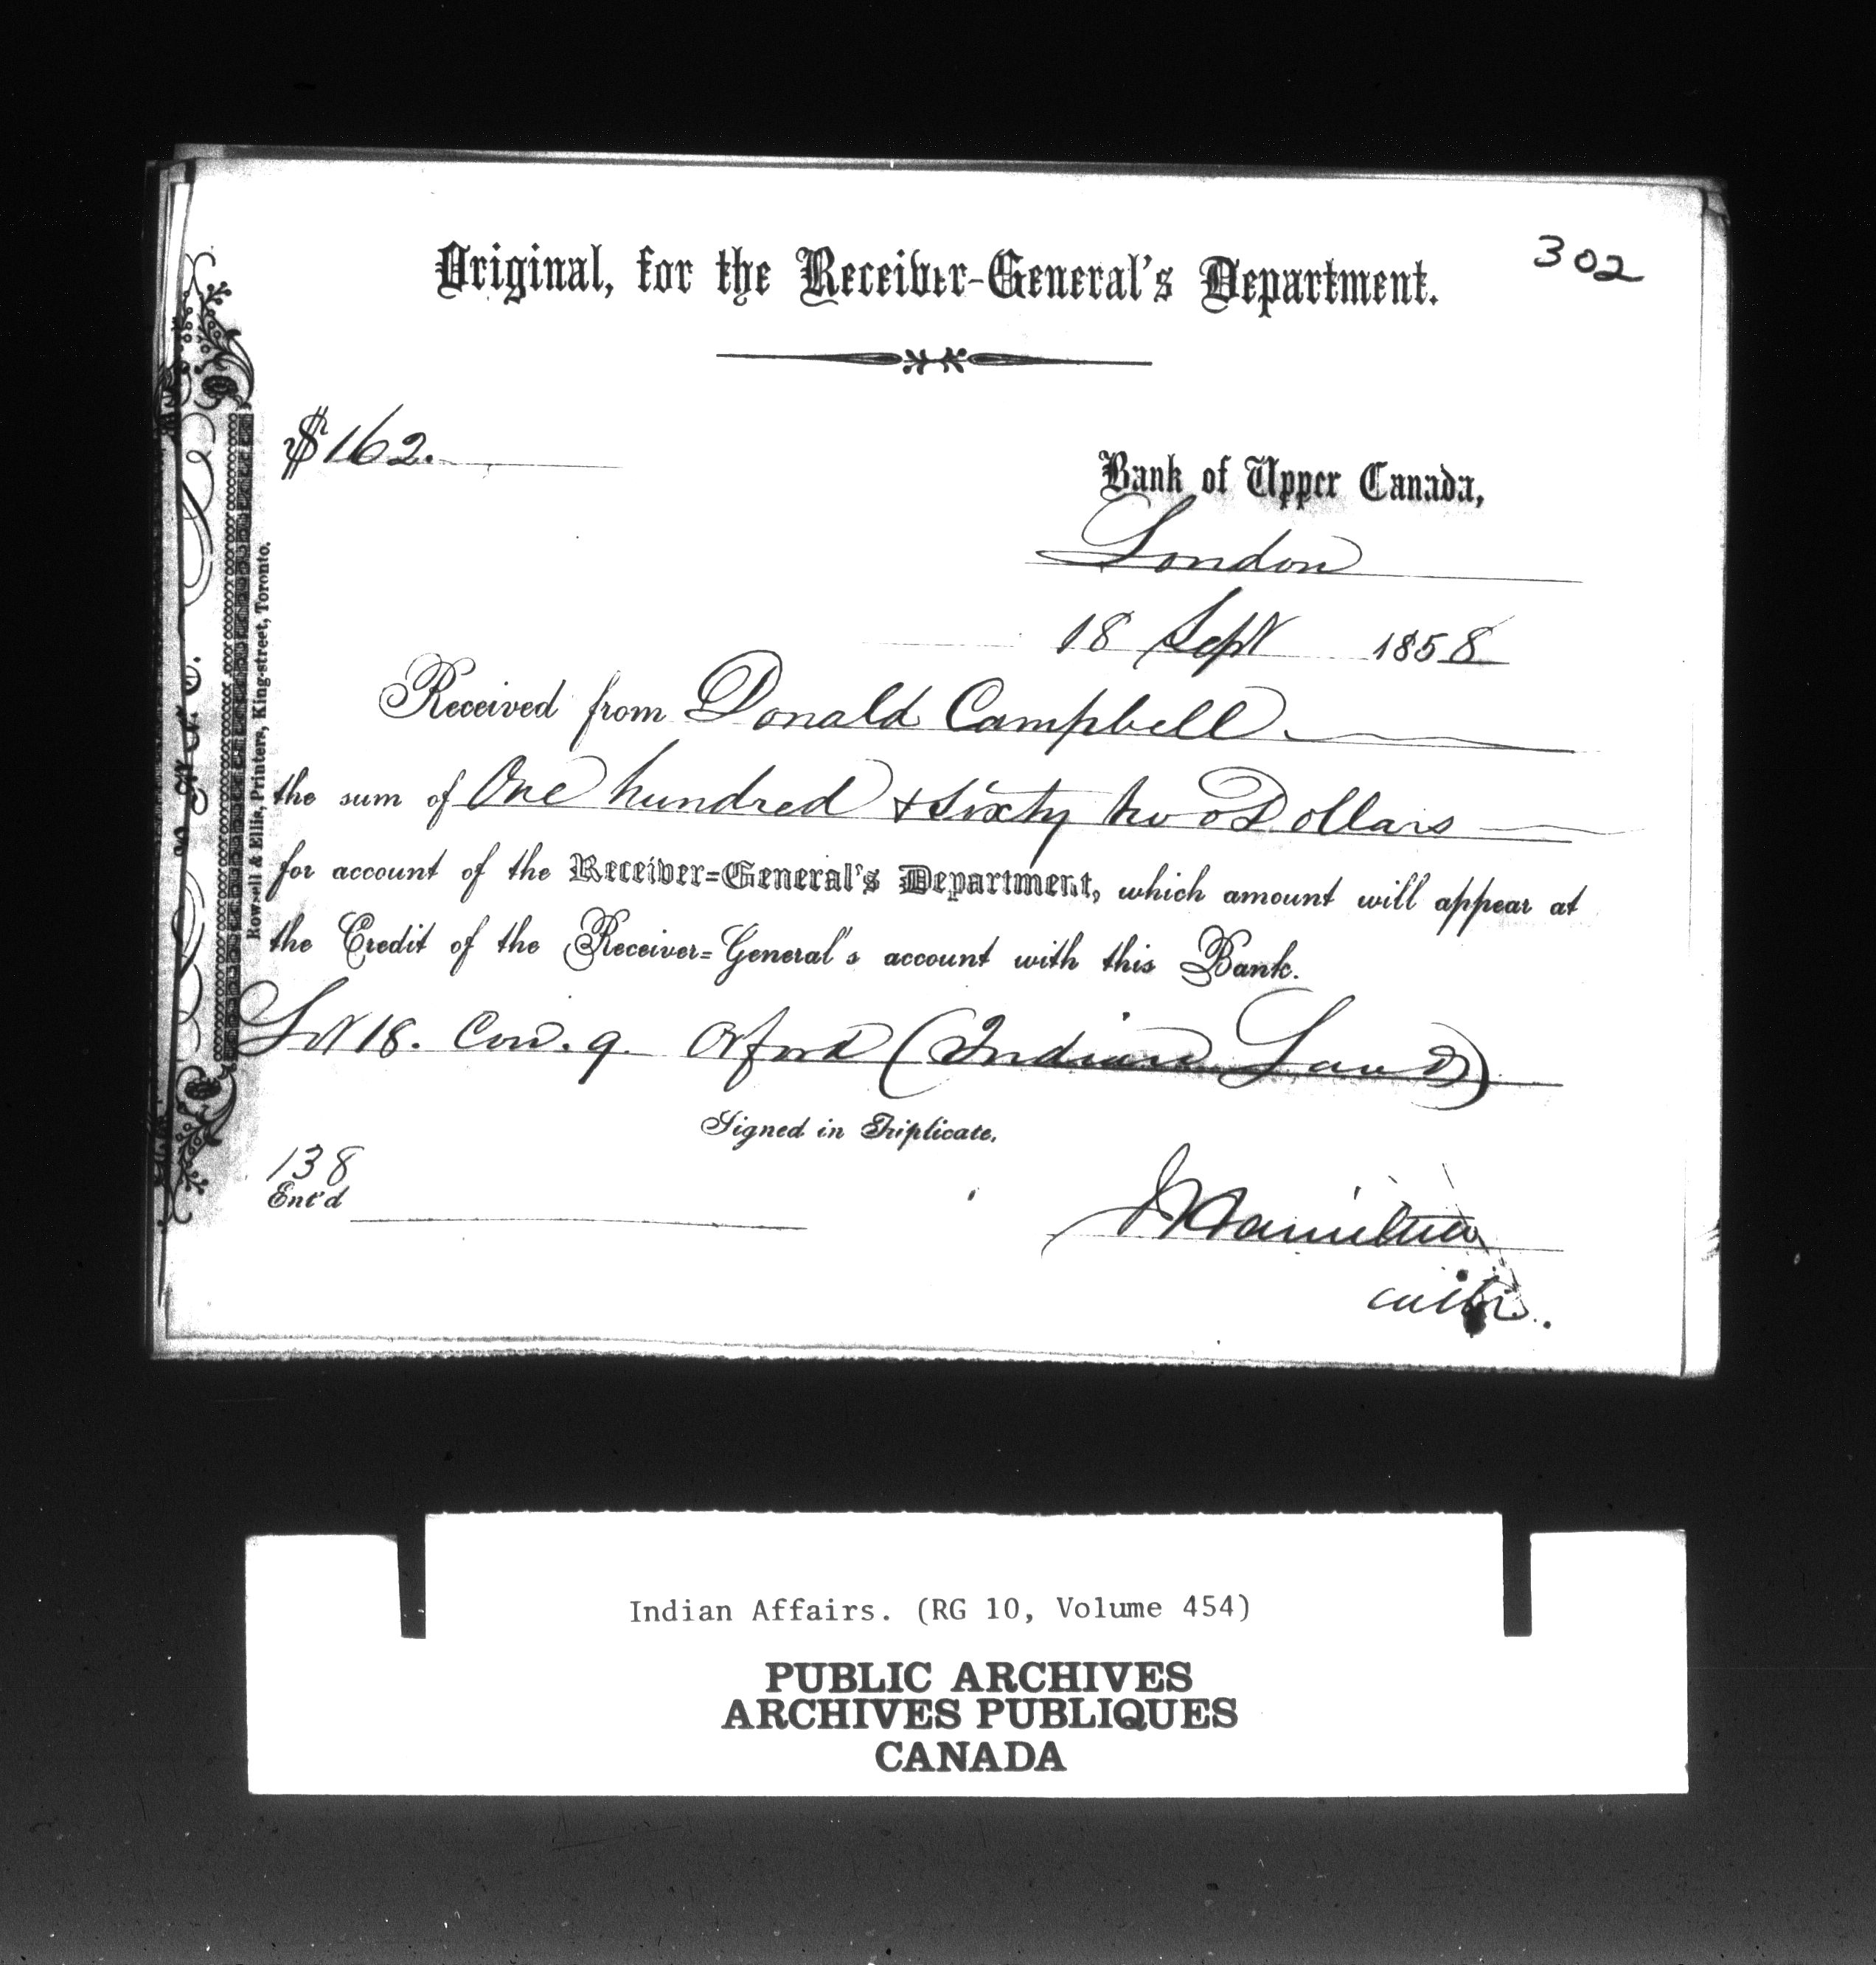 302
Original, for the Receiver-General's Department.
$162.
Bank of Upper Canada,
London
18 Sept 1858
Received from Donald Campbell
the sum of One hundred & sixty two Dollars
for account of the Receiver=General's Department, which amount will appear at
the Credit of the Receiver=General's account with this Bank.
Lot 18. Con. 9. Orford (Indian Land)
Signed in Triplicate.
138
Ent'd
J Hamilton
Rowsell & Ellis, Printers, King-street, Toronto.
Indian Affairs. (RG 10, Volume 454)
PUBLIC ARCHIVES
ARCHIVES PUBLIQUES
CANADA